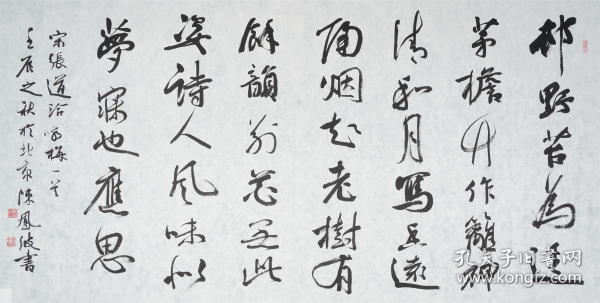 邨野苔為徑
茅檐竹作籬神
清和月寫香遠
隔烟知老樹有
餘韻別花無此
姿詩人風味似
夢寐也應思
宋張道洽咏梅一首
壬辰之秋於北京陳鳳波書
孔夫子旧书网
www.kongfz.com